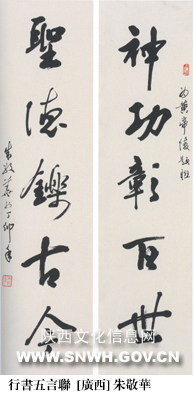 神功彰百世
為黃帝陵題
聖德鑠古今
朱敬華
陕西文化信息网
WWW.SNWH.GOV.CN
行書五言聯 [廣西] 朱敬華